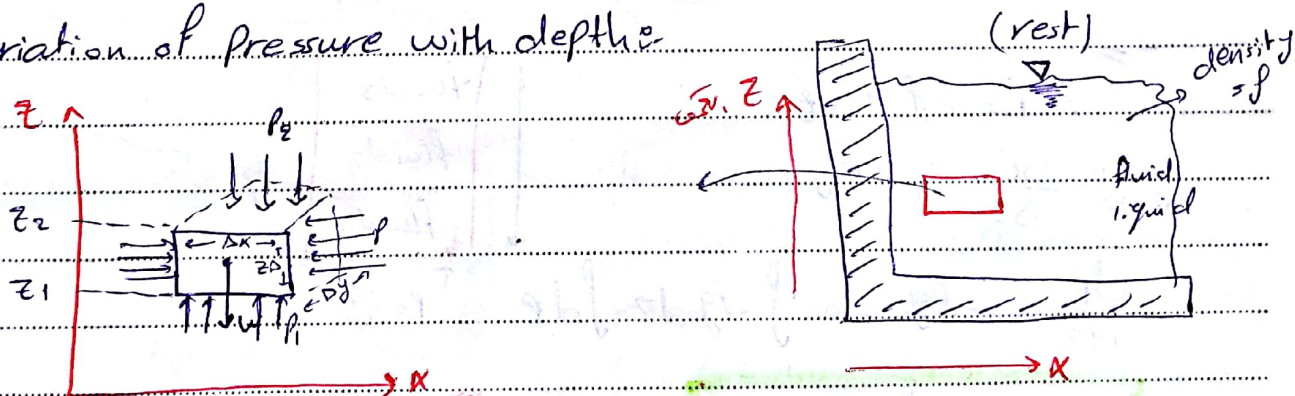 riation of Pressure with depth:
(rest)
density
= ρ
Z
Z
P2
Z2
Δx
P
ZΔ
Z1
Δy
w
P1
fluid
liquid
x
x